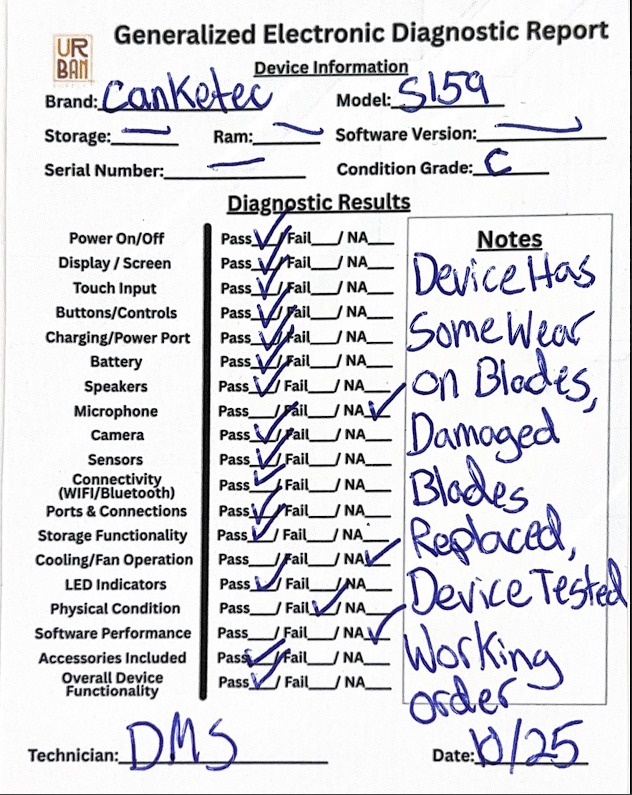 UR
BAN
Generalized Electronic Diagnostic Report
Device Information
Brand: Canketec Model: S159
Storage: — Ram: — Software Version: —
Serial Number: — Condition Grade: C
Diagnostic Results
Power On/Off Pass ✓ / Fail___/ NA___
Display / Screen Pass ✓ / Fail___/ NA___
Touch Input Pass ✓ / Fail___/ NA___
Buttons/Controls Pass ✓ / Fail___/ NA___
Charging/Power Port Pass ✓ / Fail___/ NA___
Battery Pass ✓ / Fail___/ NA___
Speakers Pass ✓ / Fail___/ NA___
Microphone Pass___/ Fail___/ NA ✓
Camera Pass ✓ / Fail___/ NA___
Sensors Pass ✓ / Fail___/ NA___
Connectivity
(WIFI/Bluetooth) Pass ✓ / Fail___/ NA___
Ports & Connections Pass ✓ / Fail___/ NA___
Storage Functionality Pass ✓ / Fail___/ NA___
Cooling/Fan Operation Pass___/ Fail___/ NA ✓
LED Indicators Pass ✓ / Fail___/ NA___
Physical Condition Pass___/ Fail ✓ / NA___
Software Performance Pass___/ Fail___/ NA ✓
Accessories Included Pass ✓ / Fail___/ NA___
Overall Device
Functionality Pass ✓ / Fail___/ NA___
Notes
Device Has
Some Wear
on Blades,
Damaged
Blades
Replaced,
Device Tested
Working
order
Technician: DMS Date: 10/25